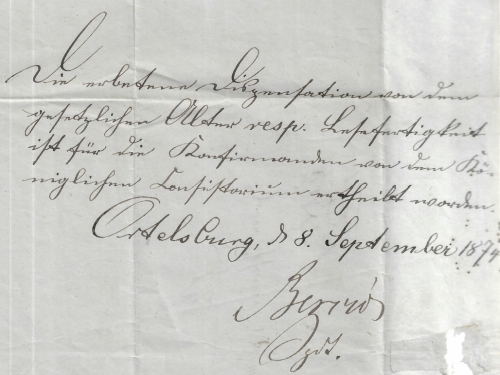 Die erbetene Dispensation von dem
gesetzlichen Alter resp. Lesefertigkeit
ist für die Konfirmanden von dem Kö-
niglichen Consistorium ertheilt worden.
Ortelsburg, d 8. September 1874
Spdt.